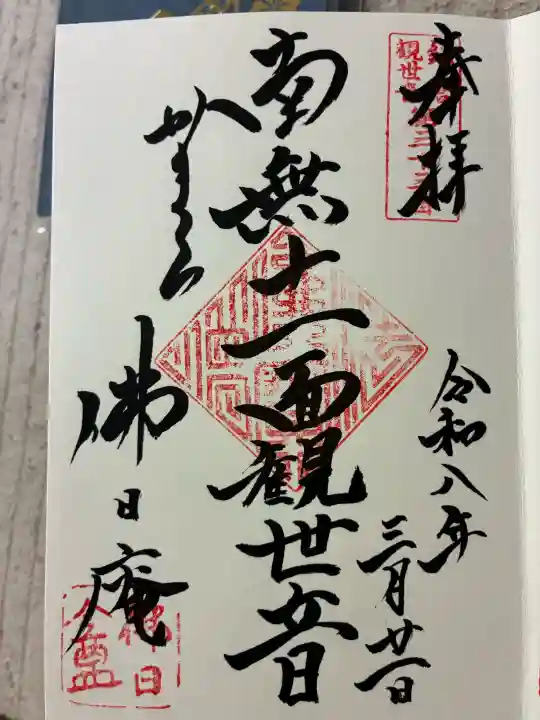 奉拝
令和八年
三月廿一日
南無十一面観世音
かまくら
佛日庵